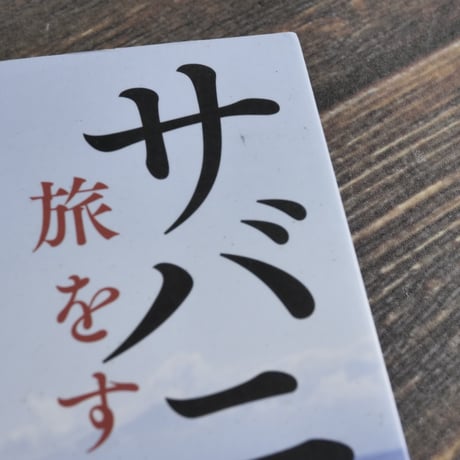 サバニ
旅をす